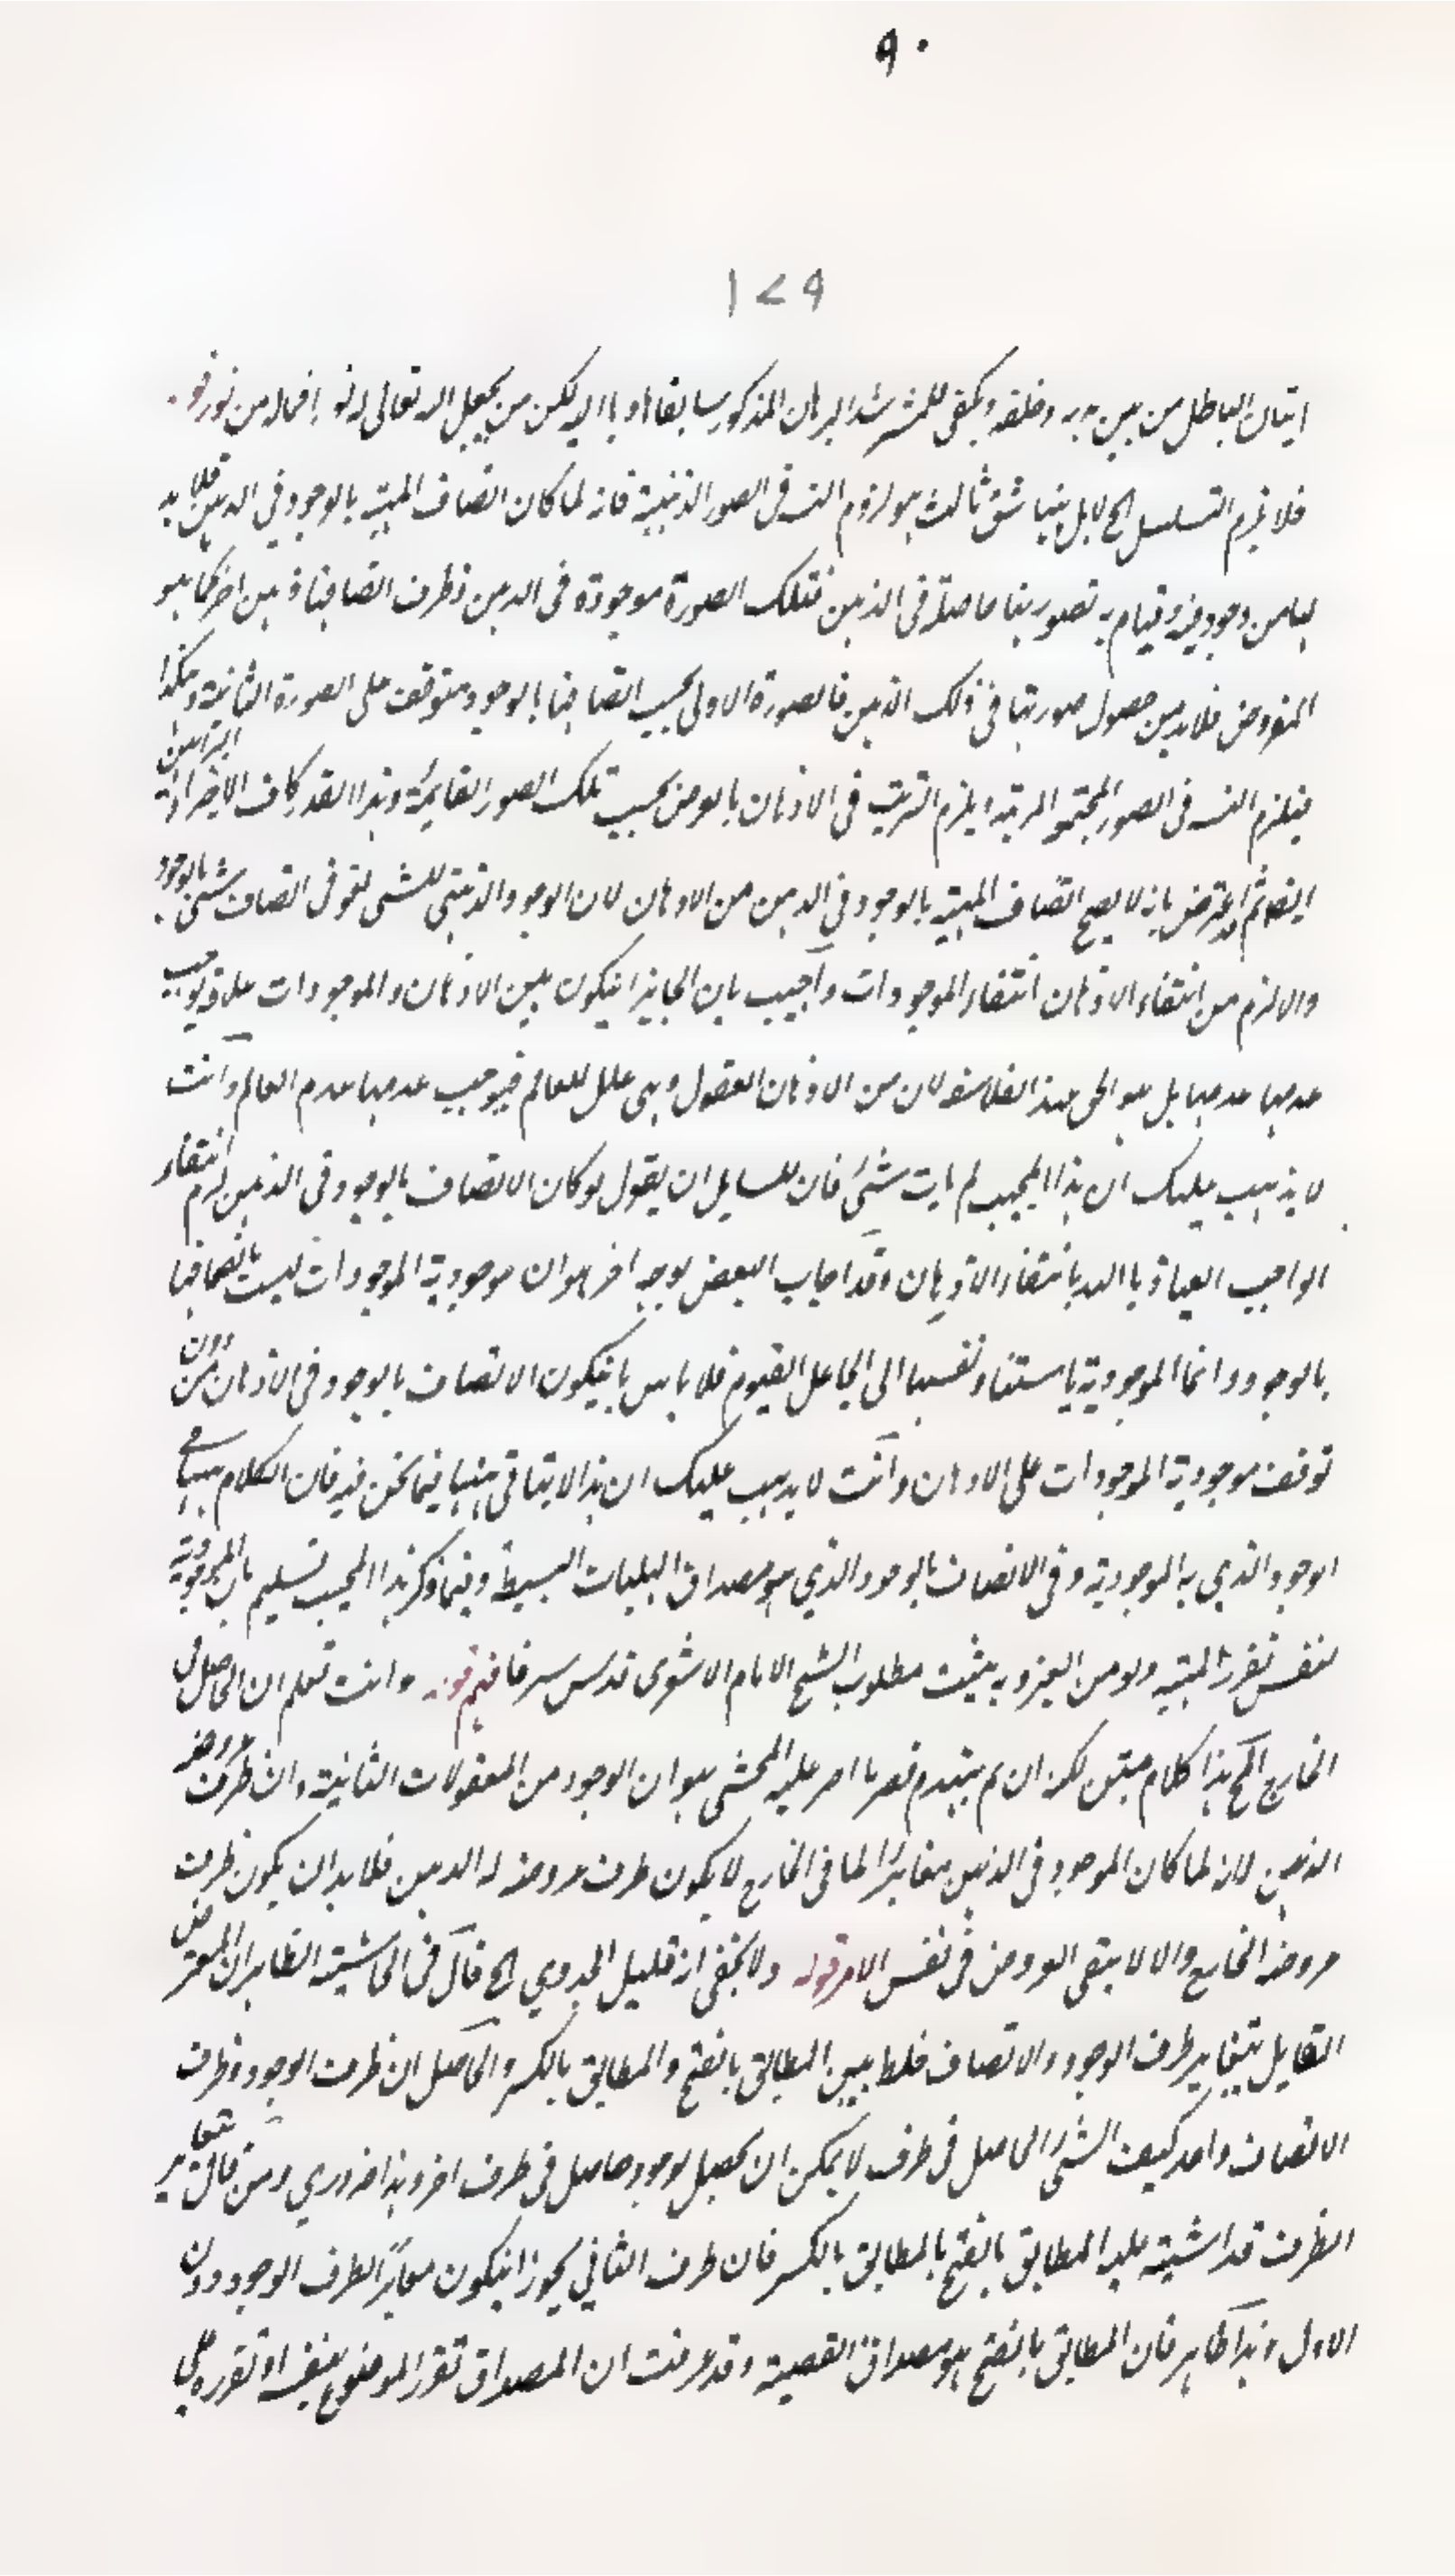 ٩٠
١٧٩
اتيان الباطل من بين يديه وخلفه ويكفي للمسترشد البرهان المذكور سابقا لكن من يجعل الله تعالى له نور فماله من نور قوله
فلا يلزم التسلسل الخ لا بل هنا شق ثالث هو لزوم التس في الصور الذهنية فانه لما كان اتصاف المهية بالوجود في الذهن فلا بد
لها من وجود فيه وقيام به تصورتها حاصلة في الذهن فتلك الصورة موجودة في الذهن فظرف اتصافها ذهن اخر كما هو
المفروض فلا بد من حصول صورتها في ذلك الذهن فالصورة الاولى بحسب اتصافها بالوجود متوقف على الصورة الثانية وهكذا
فيلزم التس في الصور المجتمعة المرتبة ويلزم الترتب في الاذهان بالعرض بحسب تلك الصور القائمة وهذا القدر كاف لاجراء البراهين
ايضا ثم اعترض بانه لا يصح اتصاف المهية بالوجود في الذهن من الاذهان لان الوجود الذهني للشئ اتصاف شئ بالوجود
والا لزم من انتفاء الاذهان انتفاء الموجودات واجيب بان الجايز ان يكون بين الاذهان والموجودات علاقة يوجب
عدمها عدمها بل هو الحق عند الفلاسفة لان من الاذهان العقول وهي علل للعالم فيوجب عدمها عدم العالم وانت
لا يذهب عليك ان هذا المجيب لم يات شئ فان للسايل ان يقول لو كان الاتصاف بالوجود في الذهن لزم انتفاء
الواجب العياذ بالله بانتفاء الاذهان وقد اجاب البعض بوجه اخر هو ان موجودية الموجودات ليست باتصافها
بالوجود وانما الموجودية باستناد نفسها الى الجاعل القيوم فلا باس بان يكون الاتصاف بالوجود في الاذهان من دون
توقف موجودية الموجودات على الاذهان وانت لا يذهب عليك ان هذا لا يتاتى ههنا فيما نحن فيه فان الكلام ههنا في
الوجود الذي به الموجودية وفي الاتصاف بالوجود الذي هو مصداق الهليات البسيطة وفيما ذكر هذا المجيب تسليم بان الموجودية
نفس تقرر المهية وبه يثبت مطلوب الشيخ الامام الاشعري قدس سره فافهم قوله وانت تعلم ان الحاصل في
الخارج الخ هذا كلام متين لكنه ان لم ينهدم قصر ما اصر عليه المحشي هو ان الوجود من المعقولات الثانية وان ظرف عروضه
الذهن لانه لما كان الموجود في الذهن مغايرا لما في الخارج لا يكون ظرف عروضه له الذهن فلا بد ان يكون ظرف
عروضه الخارج والا لا يبقى العروض في نفس الامر قوله ولا يخفى انه قليل الجدوى الخ قال في الحاشية الظاهر ان المعترض
القايل بتغاير ظرف الوجود والاتصاف خلط بين المطابق بالفتح والمطابق بالكسر والحاصل ان ظرف الوجود وظرف
الاتصاف واحد كيف الشئ الحاصل في ظرف لا يمكن ان يحصل لوجود حاصل في ظرف اخر وهذا ضروري ومن قال بتغاير
الظرف قد اشتبه عليه المطابق بالفتح بالمطابق بالكسر فان ظرف الثاني يجوز ان يكون مغايرا لظرف الوجود دون
الاول وهذا ظاهر فان المطابق بالفتح هو مصداق القضية وقد عرفت ان المصداق تقرر الموضوع بنفسه او تقرره على